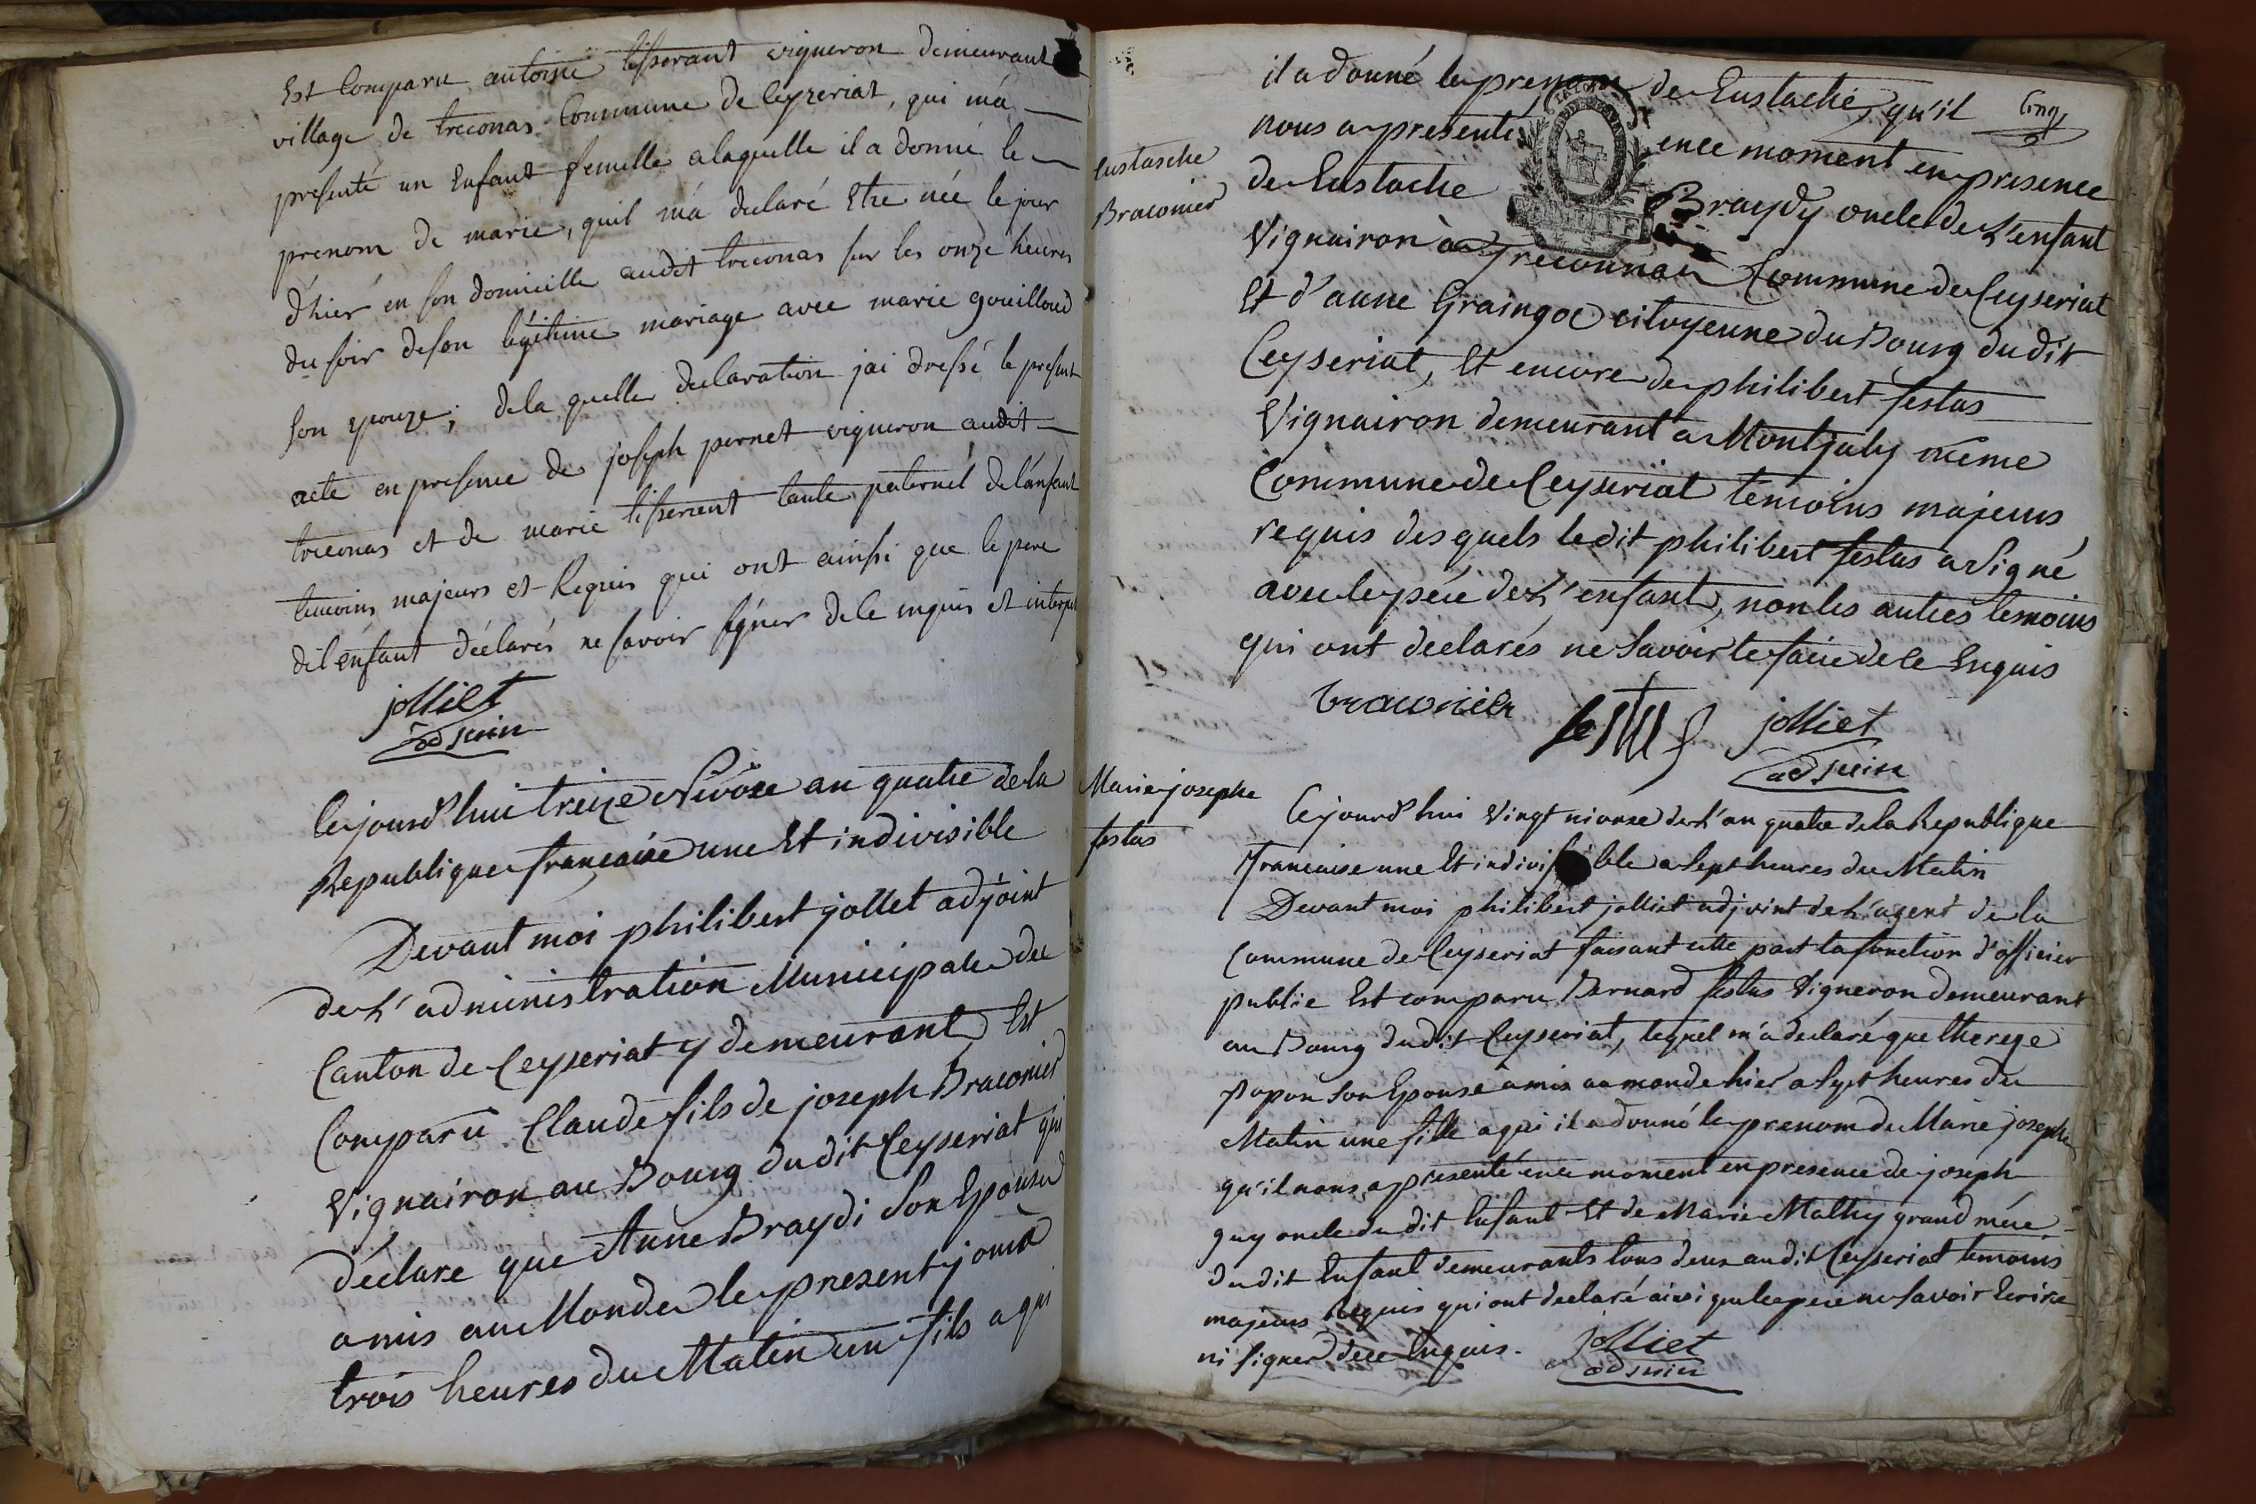 Est Comparu antoine tisserant vigneron demeurant
village de treconas Commune de Ceyzeriat, qui m'a
presenté un Enfant femelle alaquelle il a donné le
prenom de marie, quil m'a declaré Etre née le jour
d'hier en son domicille audit treconas sur les onze heures
du soir de son légitime mariage avec marie gouilloud
son epouze; de la quelle declaration jai dressé le present
acte en presence de joseph pernet vigneron audit
treconas et de marie tisserent tante paternel de l'anfant
temoins majeurs et Requis qui ont ainsi que le pere
de l'énfant déclarés ne savoir signer de ce enquis et interpel
jolliet
adjoin
Cejourd'hui treize Nivôse an quatre de la
Republique francaise une Et indivisible
Devant moi philibert jollet adjoint
de L'administration Municipale du
Canton de Ceyseriat y demeurant Est
Comparu Claude fils de joseph Braconier
Vignairon au Bourg dudit Ceyseriat qui
déclare que Anne Braydi Son Epouse
a mis au Monde le present jour à
trois heures du Matin un fils a qui
il a donné le prenom de Eustache, qu'il
Cinq
nous a presenté en ce moment en presence
Eustasche
Braconier
de Eustache Braydy oncle de L'enfant
Vignairon à treconnas Commune de Ceyseriat
Et d'anne Graingoe citoyenne du Bourg dudit
Ceyseriat, Et encore de philibert festas
Vignairon demeurant a Montjuly même
Commune de Ceyseriat temoins majeurs
requis desquels ledit philibert festas a Signé
avec le pére de L'enfant, non les autres temoins
qui ont declarés ne Savoir le faire de ce Enquis
braconier festas jolliet
adjoin
Marie josephe
festas
Cejourd'hui Vingt nivose de L'an quatre de la Republique
Francaise une Et indivisible a Sept heures du Matin
Devant moi philibert jolliet adjoint de L'agent de la
Commune de Ceyseriat faisant cette part la fonction d'officier
public Est comparu Bernard festas Vigneron demeurant
au Bourg dudit Ceyseriat, lequel m'a declaré que therese
Popon Son Epouse a mis au monde hier a Sept heures du
Matin une fille a qui il a donné le prenom de Marie josephe
qu'il nous a presenté en ce moment en presence de joseph
guy oncle du dit Enfant Et de Marie Mathy grand mére
du dit Enfant demeurants tous deux audit Ceyseriat temoins
majeurs Requis qui ont declaré ainsi que le pere ne Savoir Ecrire
ni Signer de ce Enquis. jolliet
adjoin